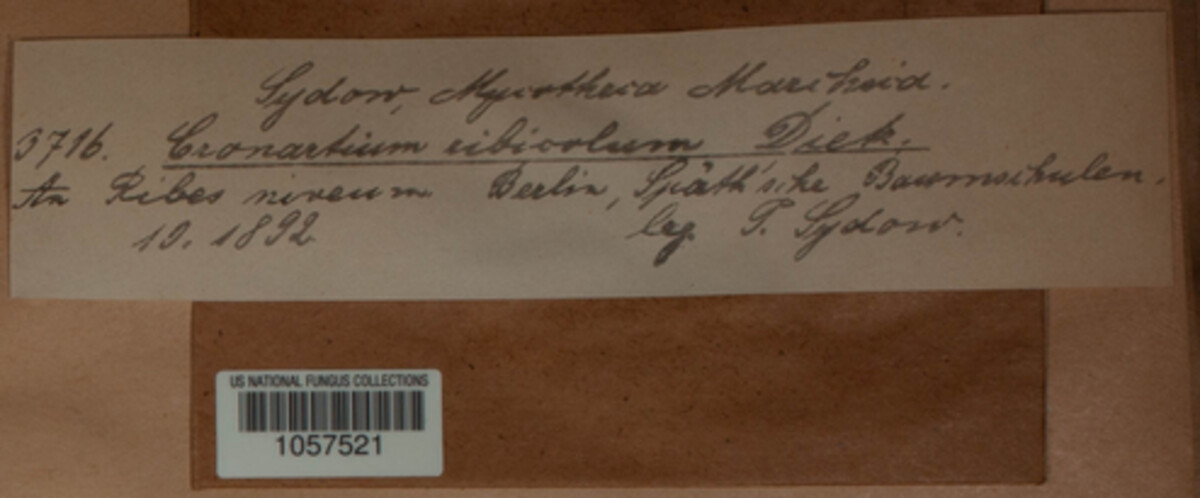 Sydow, Mycotheca Marchica.
3716. Cronartium ribicolum Diet.
An Ribes niveum. Berlin, Späth'sche Baumschulen.
10. 1892 leg. P. Sydow.
US NATIONAL FUNGUS COLLECTIONS
1057521